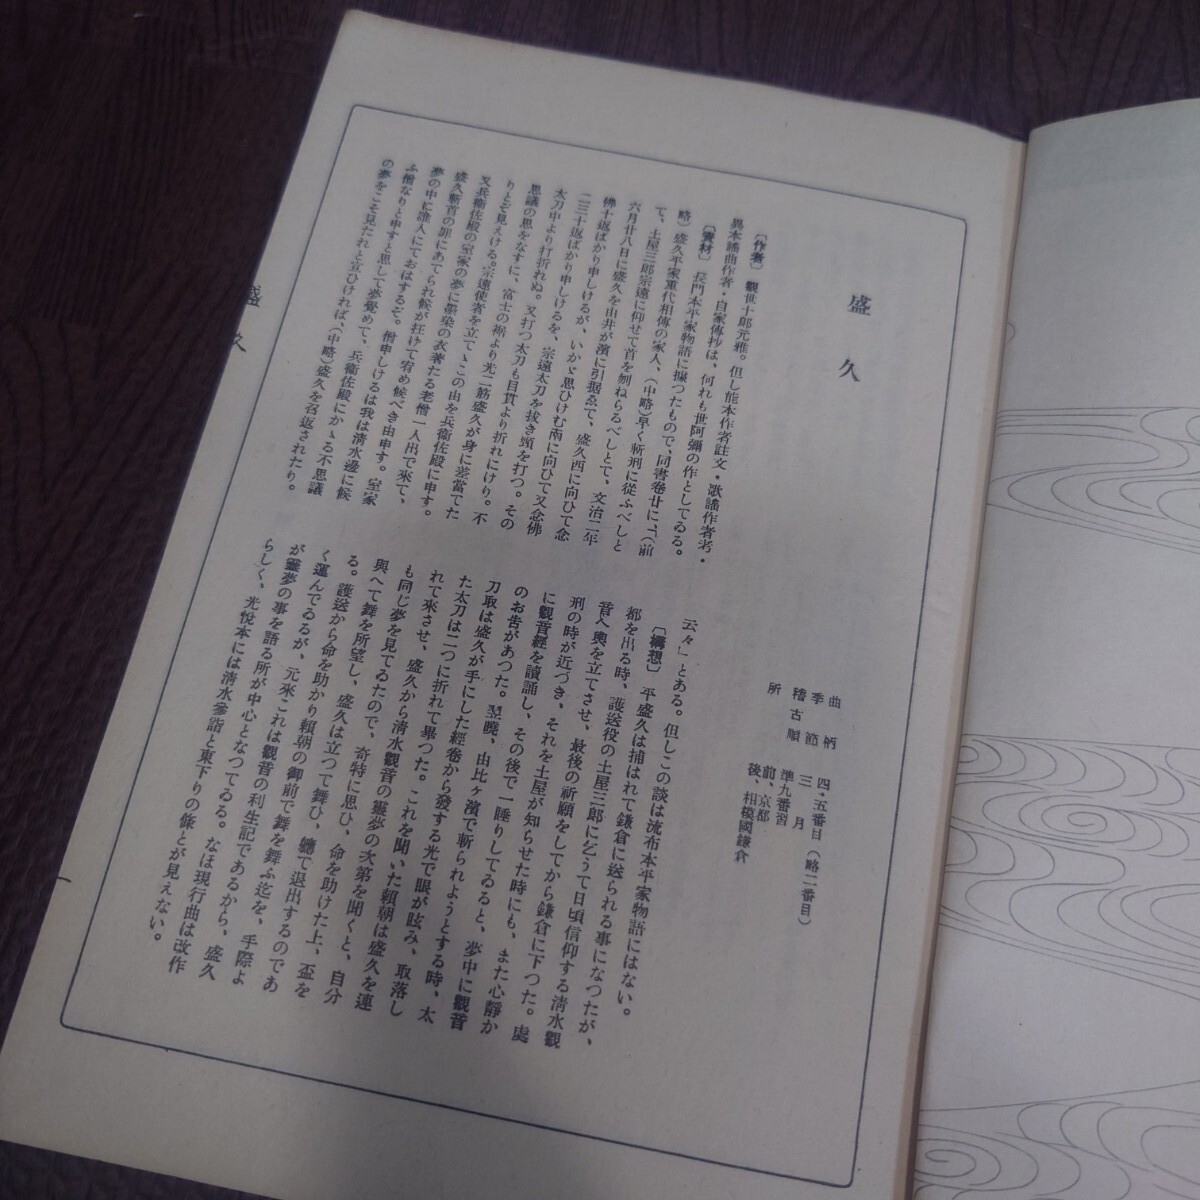 盛久
曲柄 四・五番目(略二番目)
季節 三月
稽古順 準九番習
所 前、京都
後、相模國鎌倉
〔作者〕 觀世十郎元雅。但し能本作者註文・歌謠作者考・
異本謠曲作者・自家傳抄は、何れも世阿彌の作としてゐる。
〔資材〕 長門本平家物語に據つたもので、同書卷廿に、「(前
略)盛久平家重代相傳の家人、(中略)早く斬刑に從ふべしと
て、土屋三郎宗遠に仰せて首を刎ねらるべしとて、文治二年
六月廿八日に盛久を由井が濱に引据ゑて、盛久西に向ひて念
佛十返ばかり申しけるが、いかゞ思ひけむ南に向ひて又念佛
二三十返ばかり申しけるを、宗遠太刀を拔き頸を打つ。その
太刀中より打折れぬ。又打つ太刀も目貫より折れにけり。不
思議の思をなすに、富士の裾より光二筋盛久が身に差當てた
りとぞ見えける。宗遠使者を立てゝこの由を兵衞佐殿に申す。
又兵衞佐殿の室家の夢に墨染の衣著たる老僧一人出で來て、
盛久斬首の罪にあてられ候が枉げて宥め候べき由申す。室家
夢の中に誰人にておはするぞ。僧申しけるは我は淸水邊に候
ふ僧なりと申すと思して夢覺めて、兵衞佐殿にかゝる不思議
の夢をこそ見たれと宣ひければ、(中略)盛久を召返されたり。
云々」とある。但しこの談は流布本平家物語にはない。
〔構想〕 平盛久は捕はれて鎌倉に送られる事になつたが、
都を出る時、護送役の土屋三郎に乞うて日頃信仰する淸水觀
音へ輿を立てさせ、最後の祈願をしてから鎌倉に下つた。處
刑の時が近づき、それを土屋が知らせた時にも、また心靜か
に觀音經を讀誦し、その後で一睡りしてゐると、夢中に觀音
のお告があつた。翌曉、由比ヶ濱で斬られようとする時、太
刀取は盛久が手にした經卷から發する光で眼が眩み、取落し
た太刀は二つに折れて畢つた。これを聞いた賴朝は盛久を連
れて來させ、盛久から淸水觀音の靈夢の次第を聞くと、自分
も同じ夢を見てゐたので、奇特に思ひ、命を助けた上、盃を
與へて舞を所望し、盛久は立つて舞ひ、軈て退出するのであ
る。護送から命を助かり賴朝の御前で舞を舞ふ迄を、手際よ
く運んでゐるが、元來これは觀音の利生記であるから、盛久
が靈夢の事を語る所が中心となつてゐる。なほ現行曲は改作
らしく、光悅本には淸水參詣と東下りの條とが見えない。
盛久